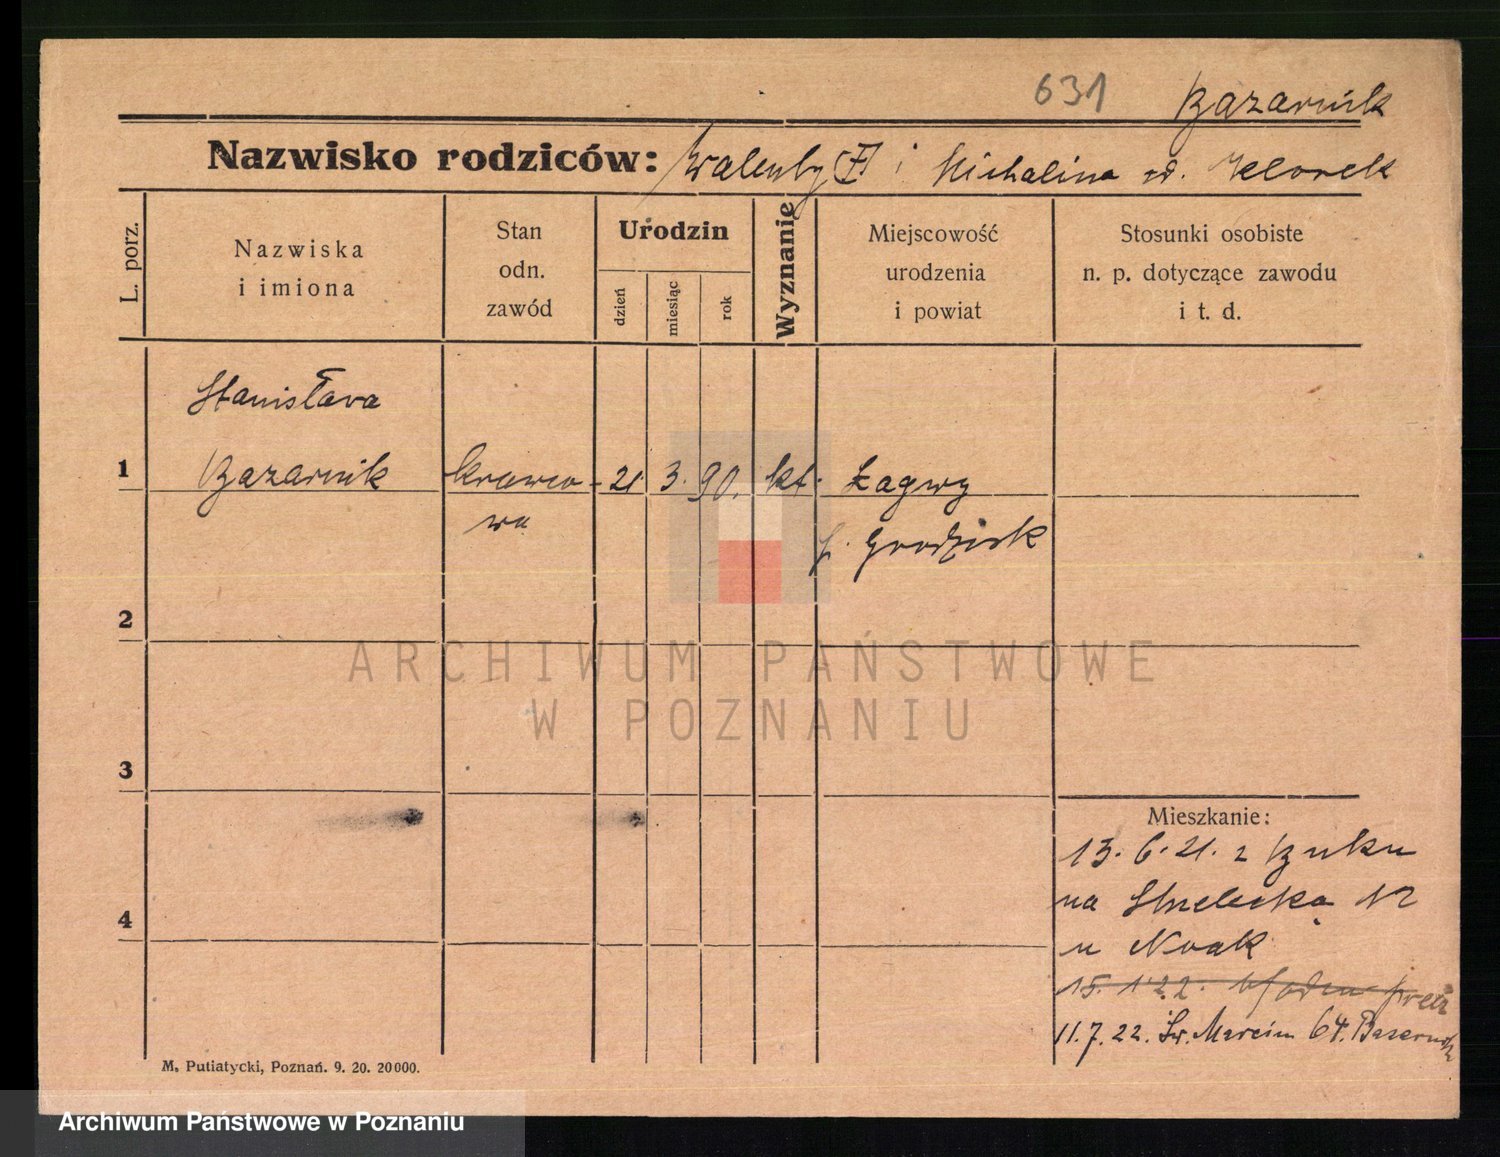 631 Bazarnik
Nazwisko rodziców: Walenty (†) i Michalina zd.
L. porz.
Nazwiska
i imiona
Stan
odn.
zawód
Urodzin
dzień
miesiąc
rok
Wyznanie
Miejscowość
urodzenia
i powiat
Stosunki osobiste
n. p. dotyczące zawodu
i t. d.
Stanisława
1 Bazarnik krawco- 21. 3. 90. kt. Łagwy
wa p. Grodzisk
2
ARCHIWUM PAŃSTWOWE
W POZNANIU
3
Mieszkanie:
13. 6. 21. z Buku
na Strzelecką 12
4
u Noak
15. 1 22.
11. 7. 22. Św. Marcin 64.
M. Putiatycki, Poznań. 9. 20. 20000.
Archiwum Państwowe w Poznaniu